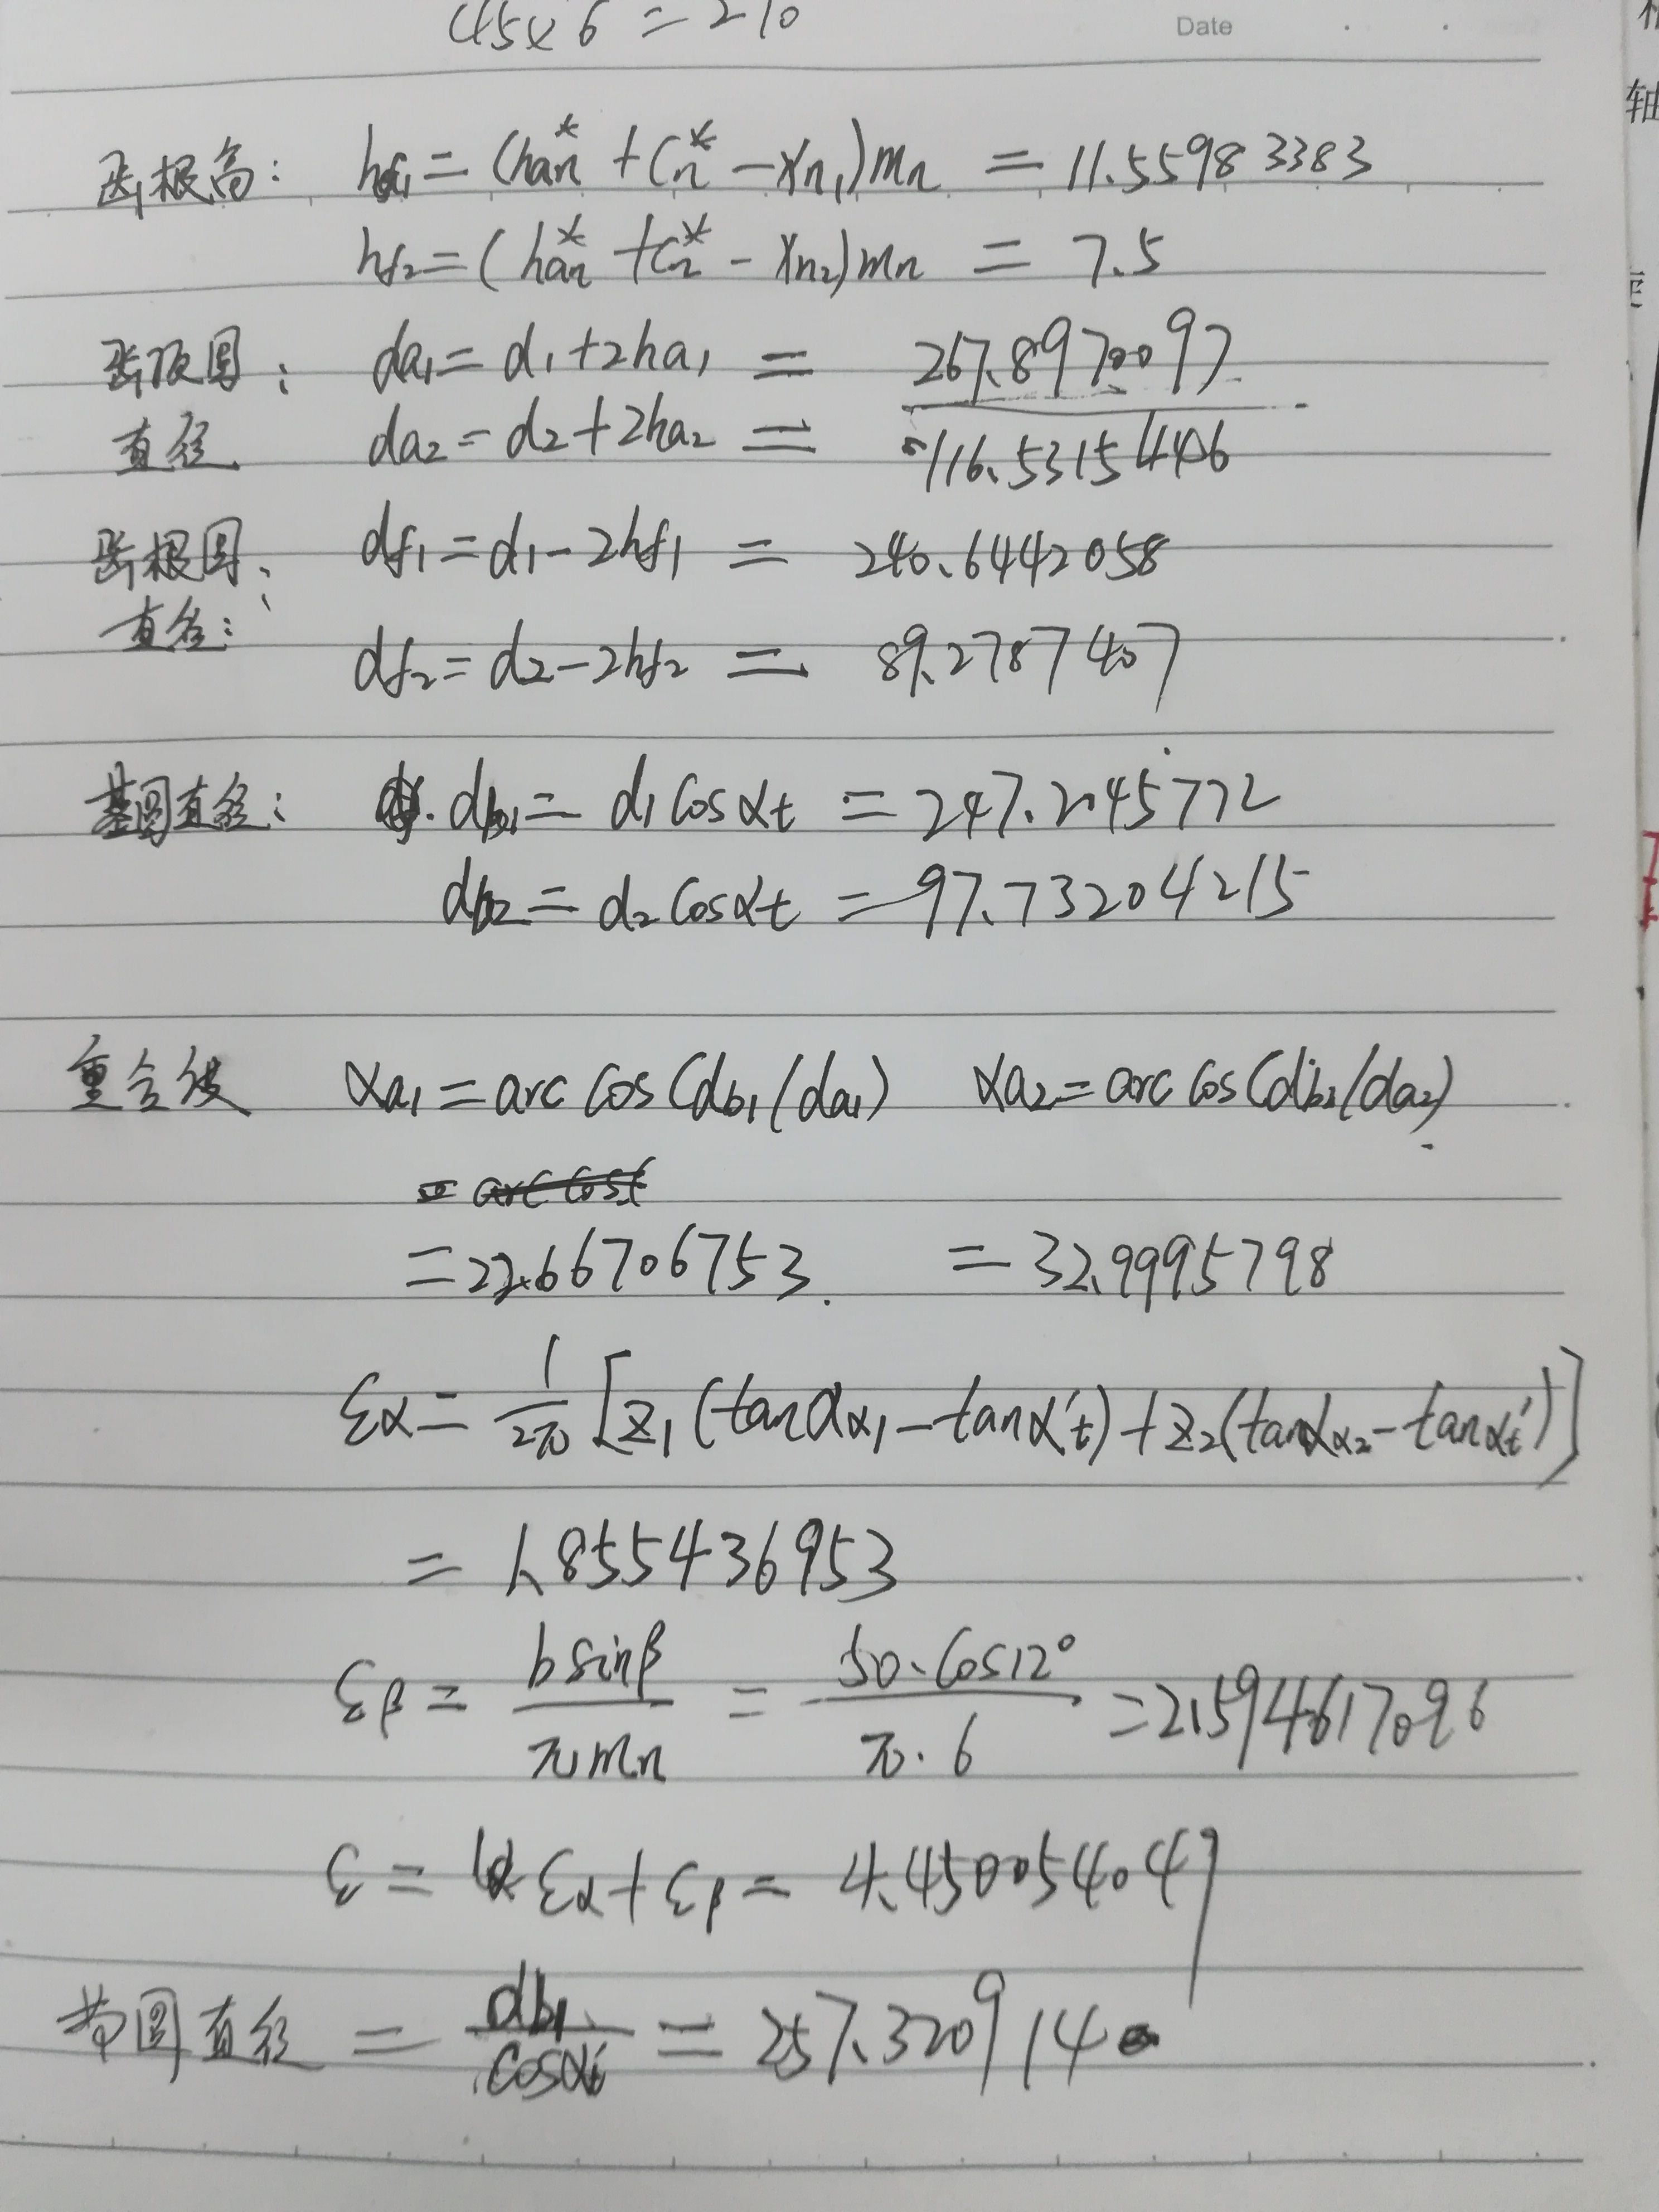 45×6=210
Date
轴
齿根高: hf₁=(han*+Cn*-xn₁)mn = 11.55983383
hf₂=(han*+Cn*-xn₂)mn = 7.5
齿顶圆: da₁=d₁+2ha₁ = 267.8970097
直径 da₂=d₂+2ha₂ = 116.5315446
齿根圆: df₁=d₁-2hf₁ = 240.6442058
直径: df₂=d₂-2hf₂ = 89.2787407
基圆直径: db₁=d₁cosαt=247.2045772
db₂=d₂cosαt=97.73204215
重合度 αa₁=arc cos(db₁/da₁) αa₂=arc cos(db₂/da₂)
=22.66706753 =32.9995798
εα=1/2π[z₁(tanαα₁-tanα't)+z₂(tanαα₂-tanα't)]
=1.855436953
εβ=bsinβ/πmn=50·cos12°/π·6=2.594617096
ε=εα+εβ=4.450054049
节圆直径=db₁/cosα't=257.3209140